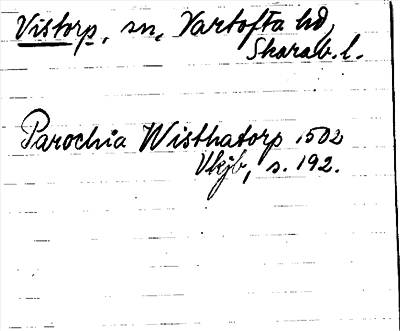 Vistorp, sn, Vartofta hd,
Skarab. l.
Parochia Wisthatorp 1502
Vkjb, s. 192.